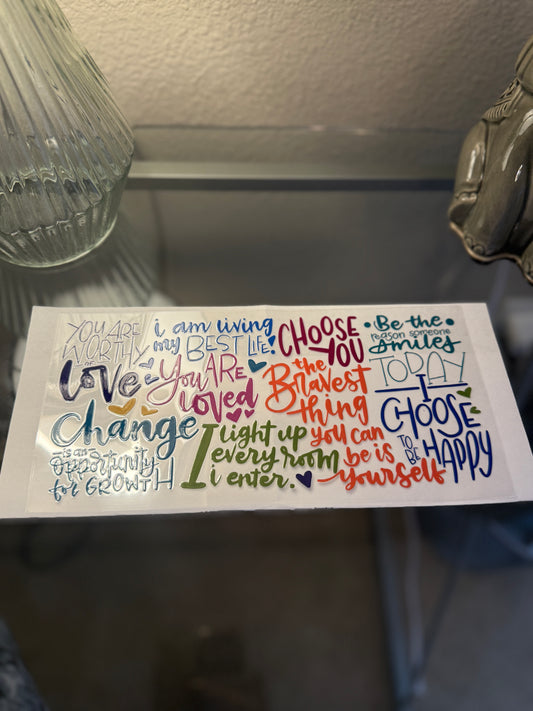 YOU ARE
WORTHY
of
Love
i am living
my BEST LIFE
YOU ARE
loved
CHOOSE
YOU
Be the
reason someone
smiles
TODAY
Change
is an
opportunity
for GROWTH
I light up
every room
i enter.
the
Bravest
thing
you can
be is
yourself
I
CHOOSE
TO BE
HAPPY